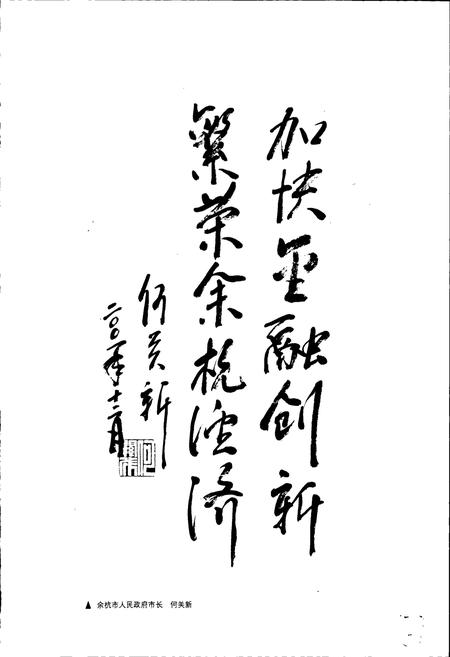 加快金融创新
繁荣余杭经济
何关新
二〇〇一年十二月
▲ 余杭市人民政府市长 何关新